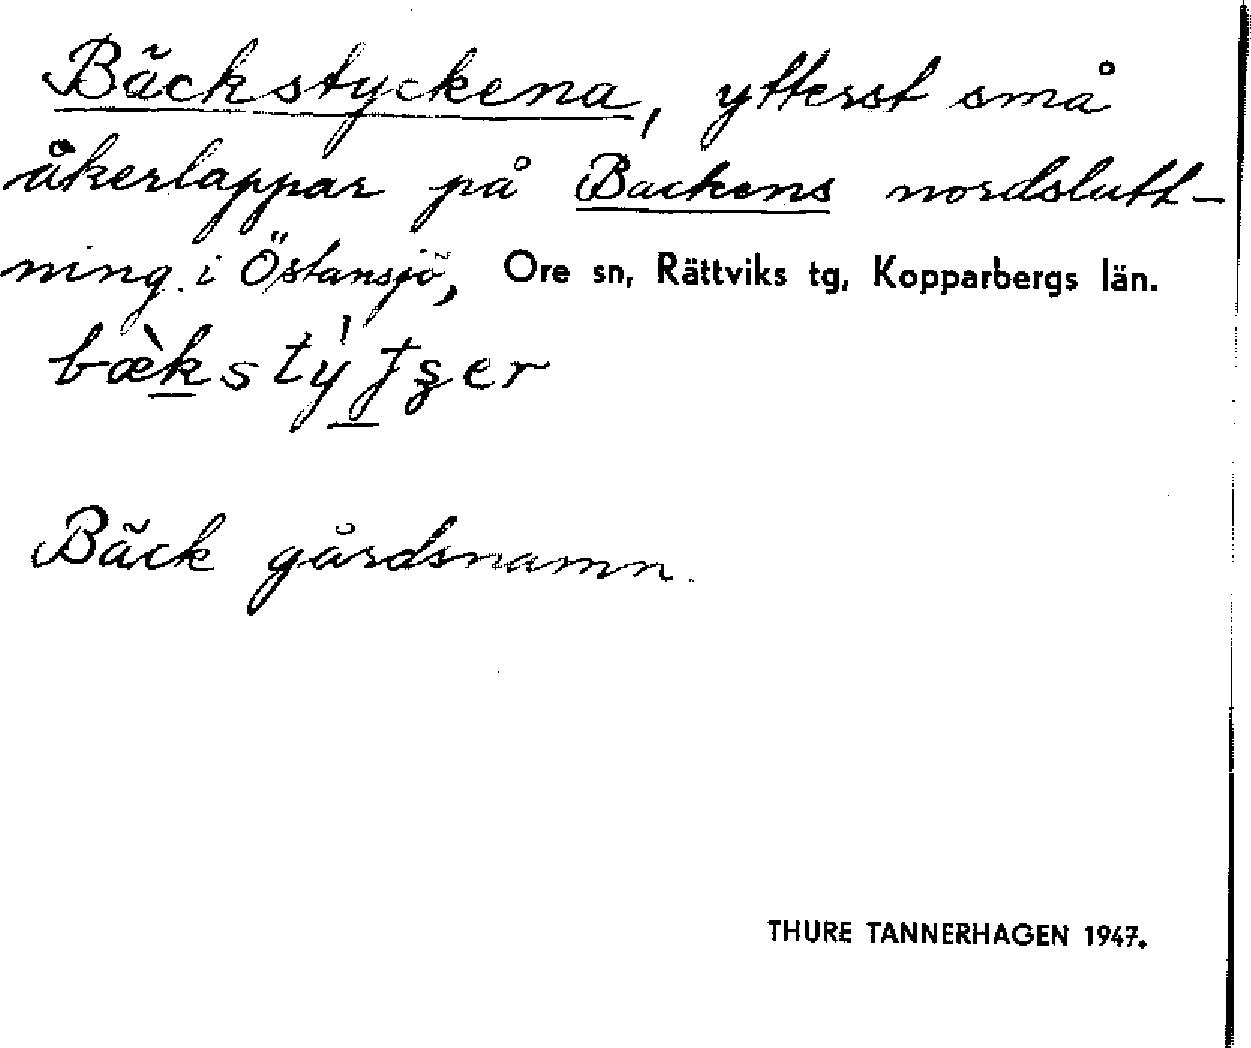 Bäckstyckena, ytterst små
åkerlappar på Backens nordslutt-
ning i Östansjö, Ore sn, Rättviks tg, Kopparbergs län.
Bäck gårdsnamn.
THURE TANNERHAGEN 1947.